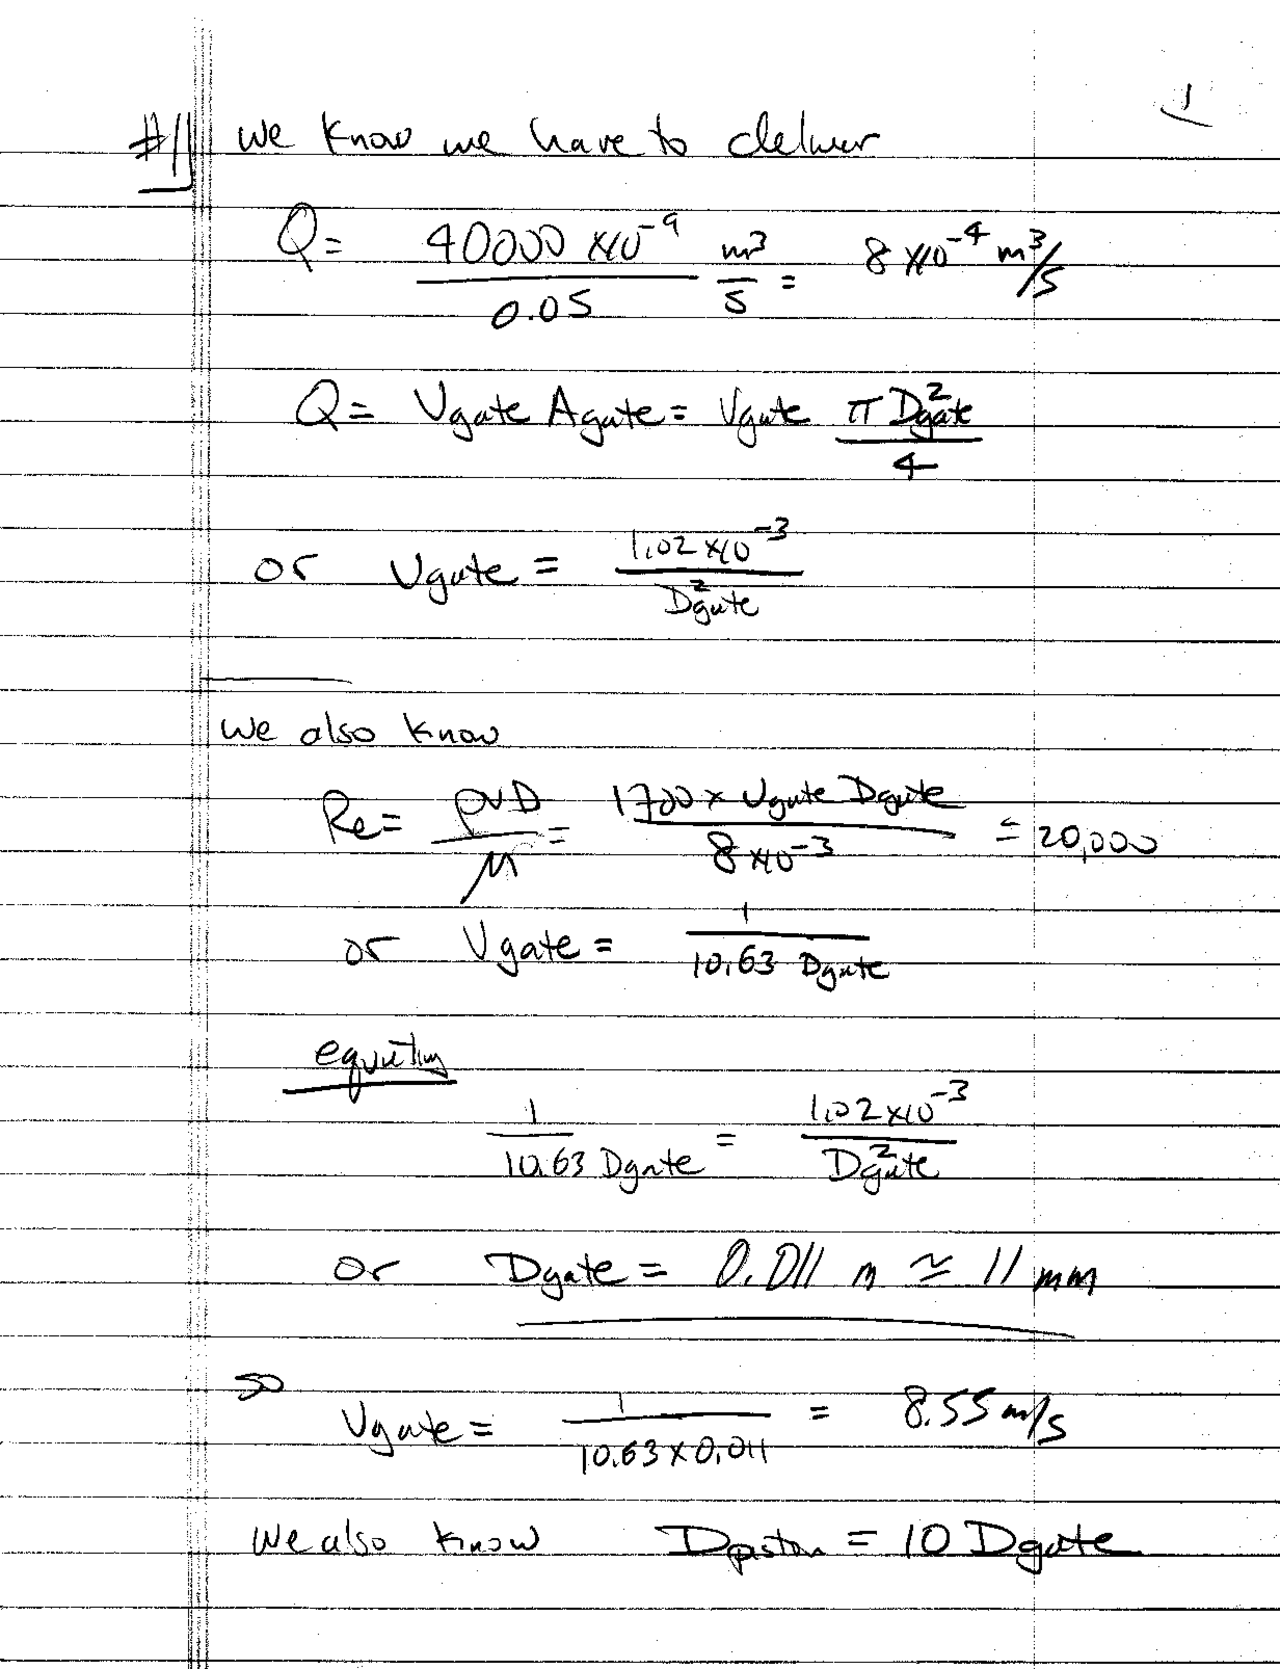 1
#1 we know we have to deliver
Q = 40000 x10^-9 / 0.05 m^3/s = 8 x10^-4 m^3/s
Q = Vgate Agate = Vgate π Dgate^2 / 4
or Vgate = 1.02 x10^-3 / Dgate^2
we also know
Re = ρVD / μ = 1700 x Vgate Dgate / 8 x10^-3 = 20,000
or Vgate = 1 / 10.63 Dgate
equating
1 / 10.63 Dgate = 1.02 x10^-3 / Dgate^2
or Dgate = 0.011 m ≃ 11 mm
so
Vgate = 1 / 10.63 x 0.011 = 8.55 m/s
we also know Dpiston = 10 Dgate